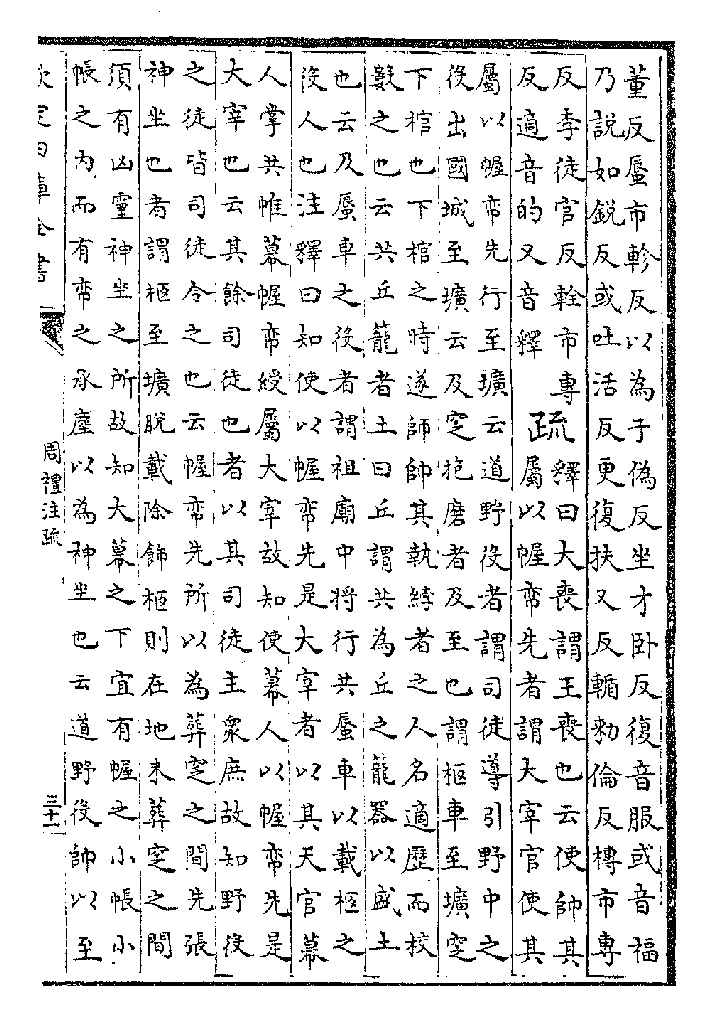 董反蜃市軫反以為于偽反坐才卧反復音服或音福
乃說如銳反或吐活反更復扶又反輴勑倫反槫市專
反李徒官反輇市專
反適音的又音釋
疏
釋曰大喪謂王喪也云使帥其
屬以幄帟先者謂大宰官使其
屬以幄帟先行至壙云道野役者謂司徒導引野中之
役出國城至壙云及窆抱磨者及至也謂柩車至壙窆
下棺也下棺之時遂師帥其執綍者之人名適歷而校
數之也云共丘籠者土曰丘謂共為丘之籠器以盛土
也云及蜃車之役者謂祖廟中將行共蜃車以載柩之
役人也注釋曰知使以幄帟先是大宰者以其天官幕
人掌共帷幕幄帟綬屬大宰故知使幕人以幄帟先是
大宰也云其餘司徒也者以其司徒主衆庶故知野役
之徒皆司徒令之也云幄帟先所以為葬窆之間先張
神坐也者謂柩至壙脫載除飾柩則在地未葬窆之間
須有凶靈神坐之所故知大幕之下宜有幄之小帳小
帳之內而有帟之承塵以為神坐也云道野役帥以至
欽定四庫全書
周禮注疏
三十一